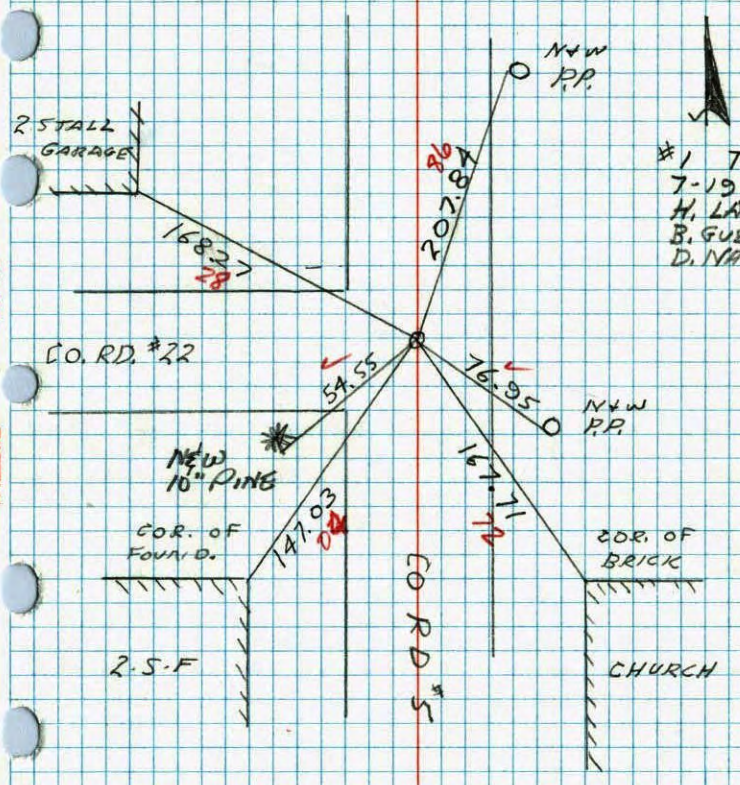 N&W
P.P.
2 STALL
GARAGE
86
207.84
#1 7
7-19
H. LA
B. GUE
D. NA
168.27
28
CO. RD. #22
54.55
76.95
N&W
P.P.
N&W
10" PINE
167.71
72
147.03
COR. OF
FOUND.
COR. OF
BRICK
CO RD #5
2.S.F
CHURCH